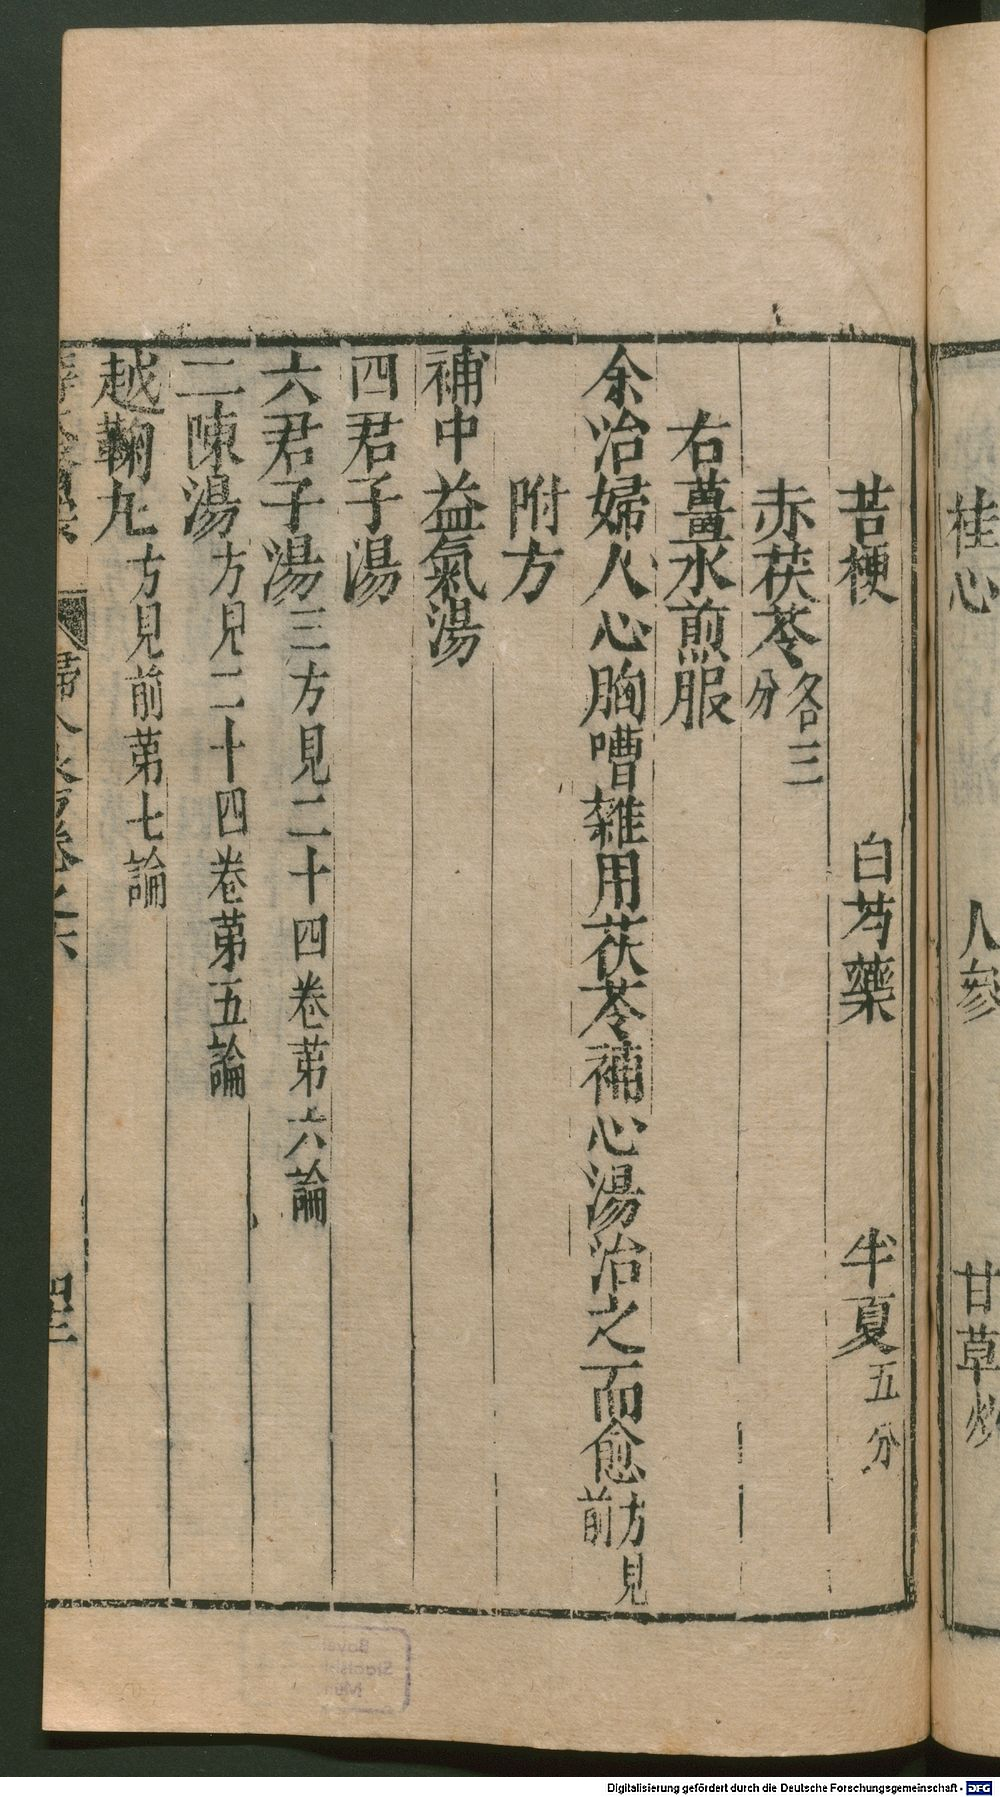 桂心　人參　甘草炒
苦梗　白芍藥　半夏五分
赤茯苓各三分
右薑水煎服
余治婦人心胸嘈雜用茯苓補心湯治之而愈方見前
附方
補中益氣湯
四君子湯
六君子湯三方見二十四卷第六論
二陳湯方見二十四卷第五論
越鞠丸方見前第七論
婦人良方卷之六
Digitalisierung gefördert durch die Deutsche Forschungsgemeinschaft - DFG